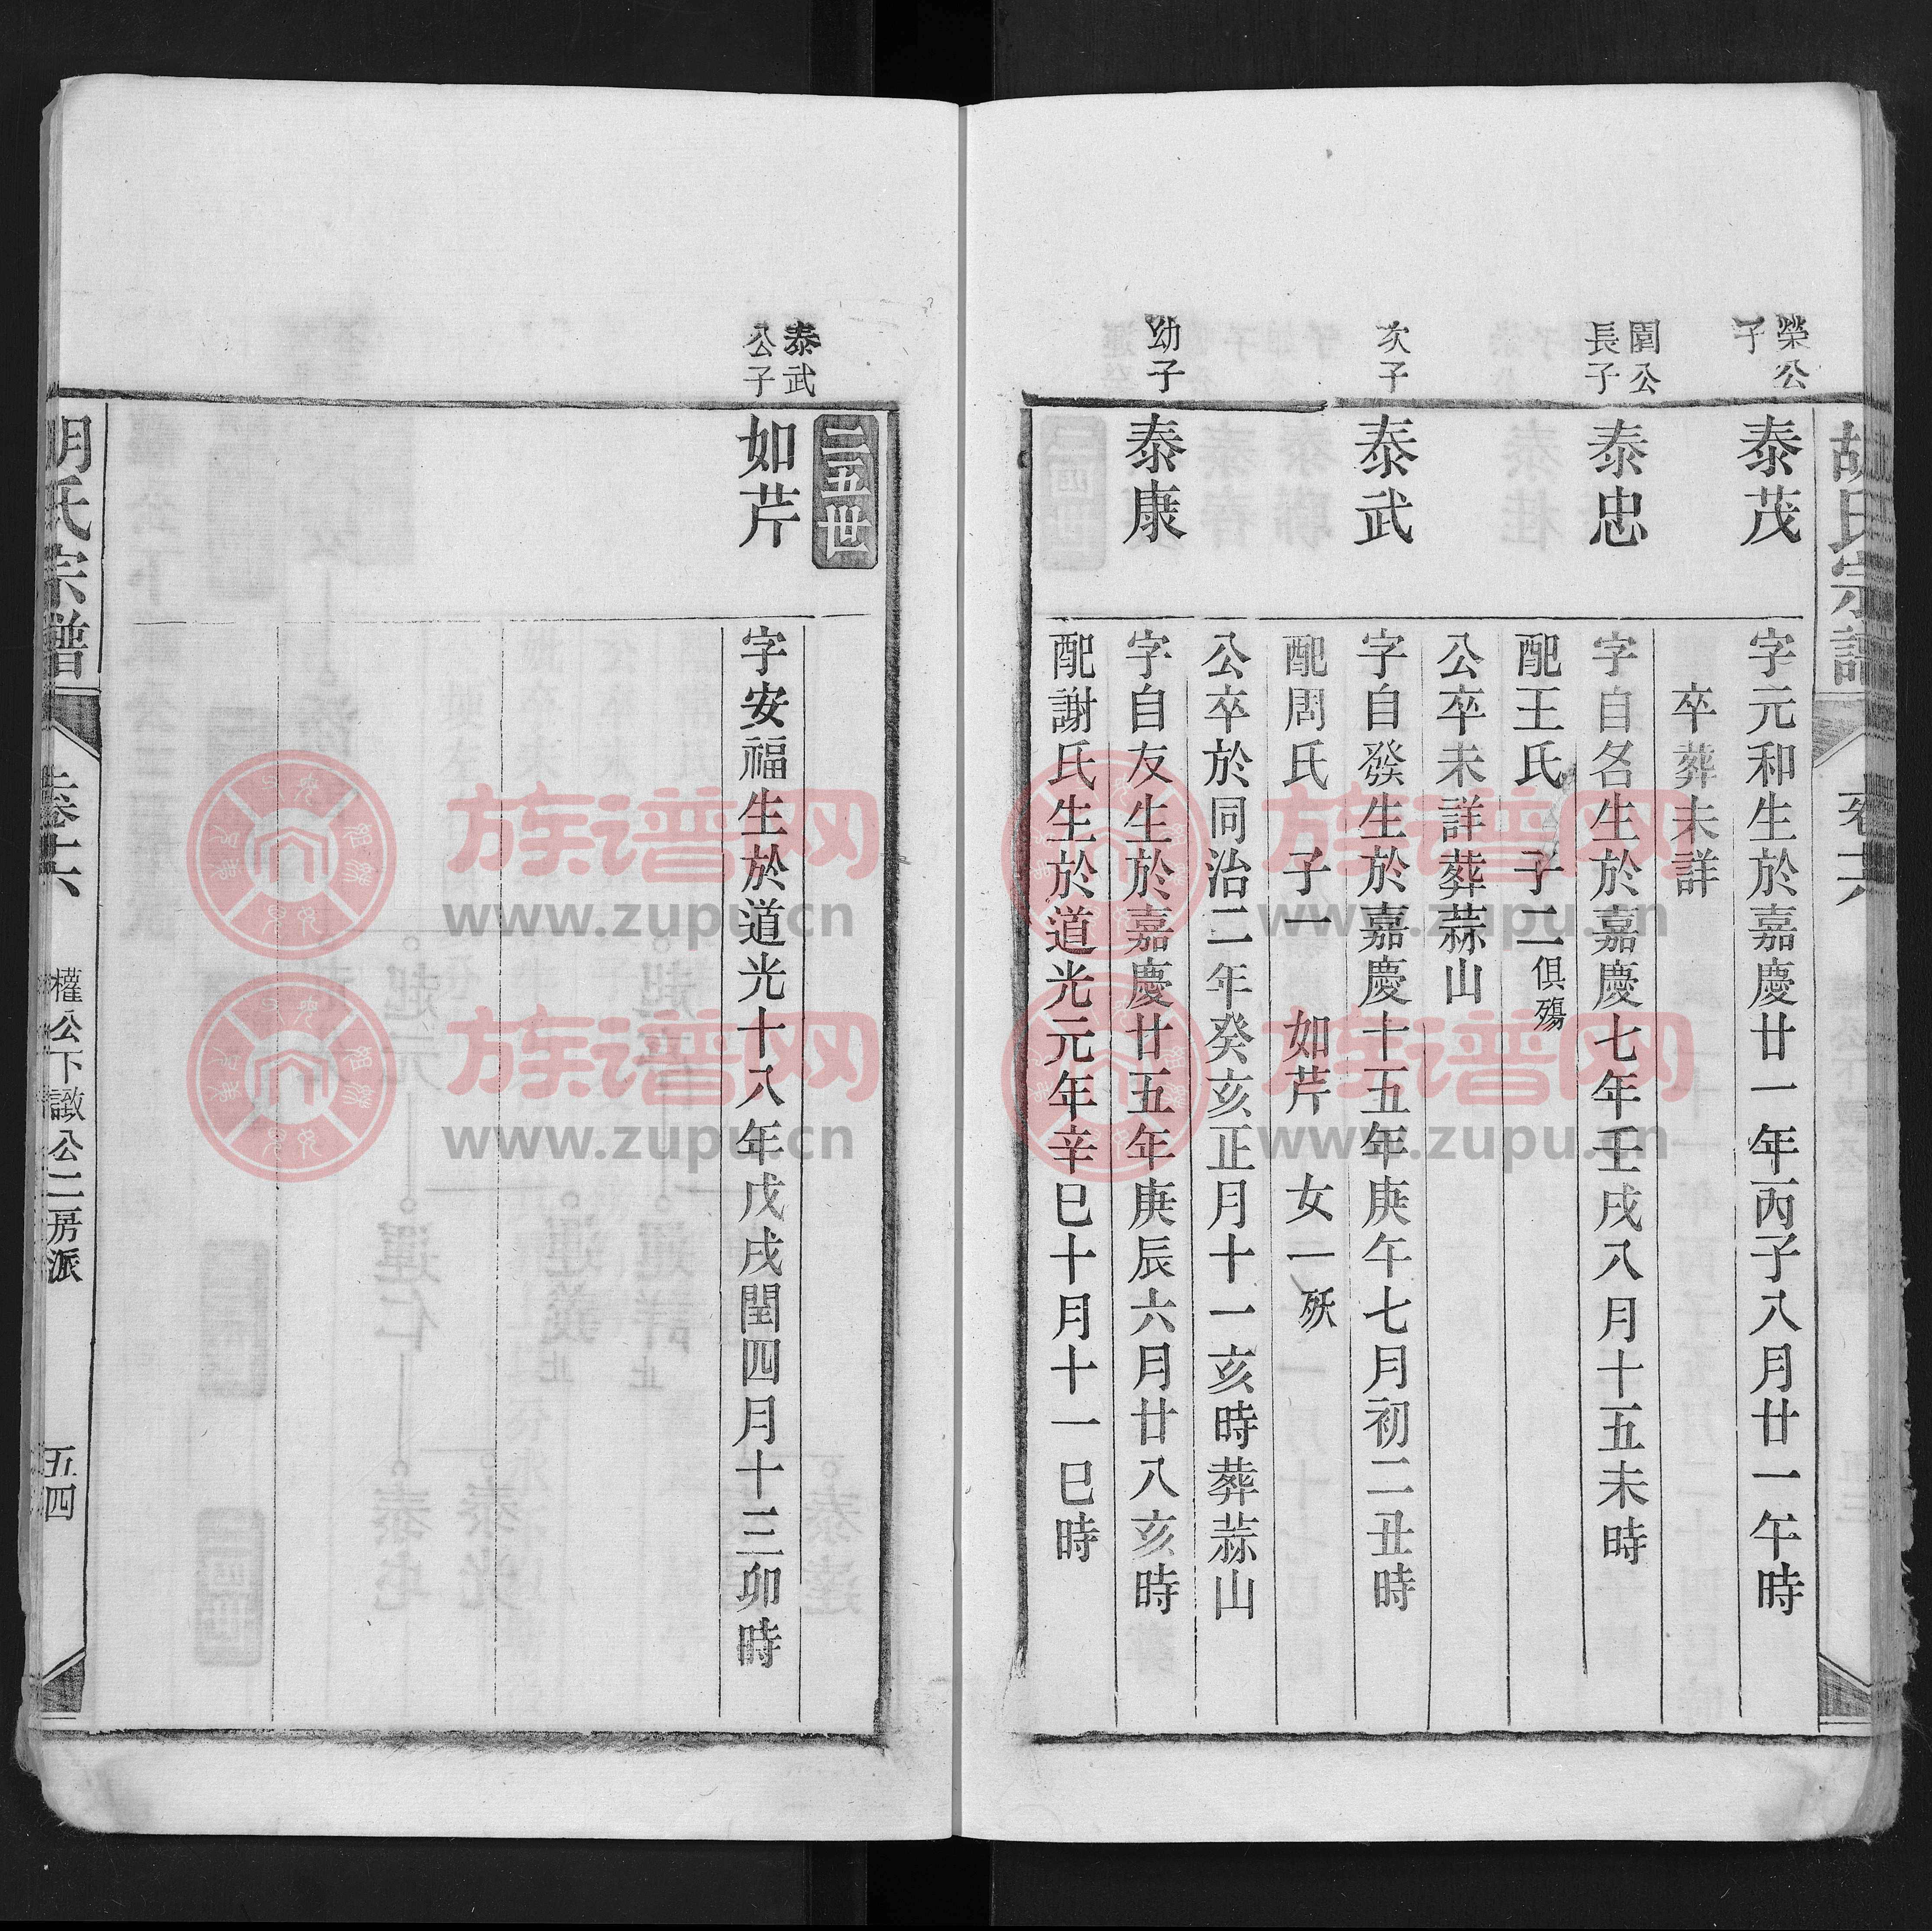 胡氏宗譜
卷六
榮公
子
泰茂
字元和生於嘉慶廿一年丙子八月廿一午時
卒葬未詳
閏公
長子
泰忠
字自名生於嘉慶七年壬戌八月十五未時
配王氏 子二俱殤
公卒未詳葬蒜山
次子
泰武
字自發生於嘉慶十五年庚午七月初二丑時
配周氏 子一 如芹 女一殀
公卒於同治二年癸亥正月十一亥時葬蒜山
幼子
泰康
字自友生於嘉慶廿五年庚辰六月廿八亥時
配謝氏生於道光元年辛巳十月十一巳時
二五世
泰武
公子
如芹
字安福生於道光十八年戊戌閏四月十三卯時
胡氏宗譜
卷六
權公下諏公二房派
五四
族谱网
www.zupu.cn
族谱网
www.zupu.cn
族谱网
www.zupu.cn
族谱网
www.zupu.cn